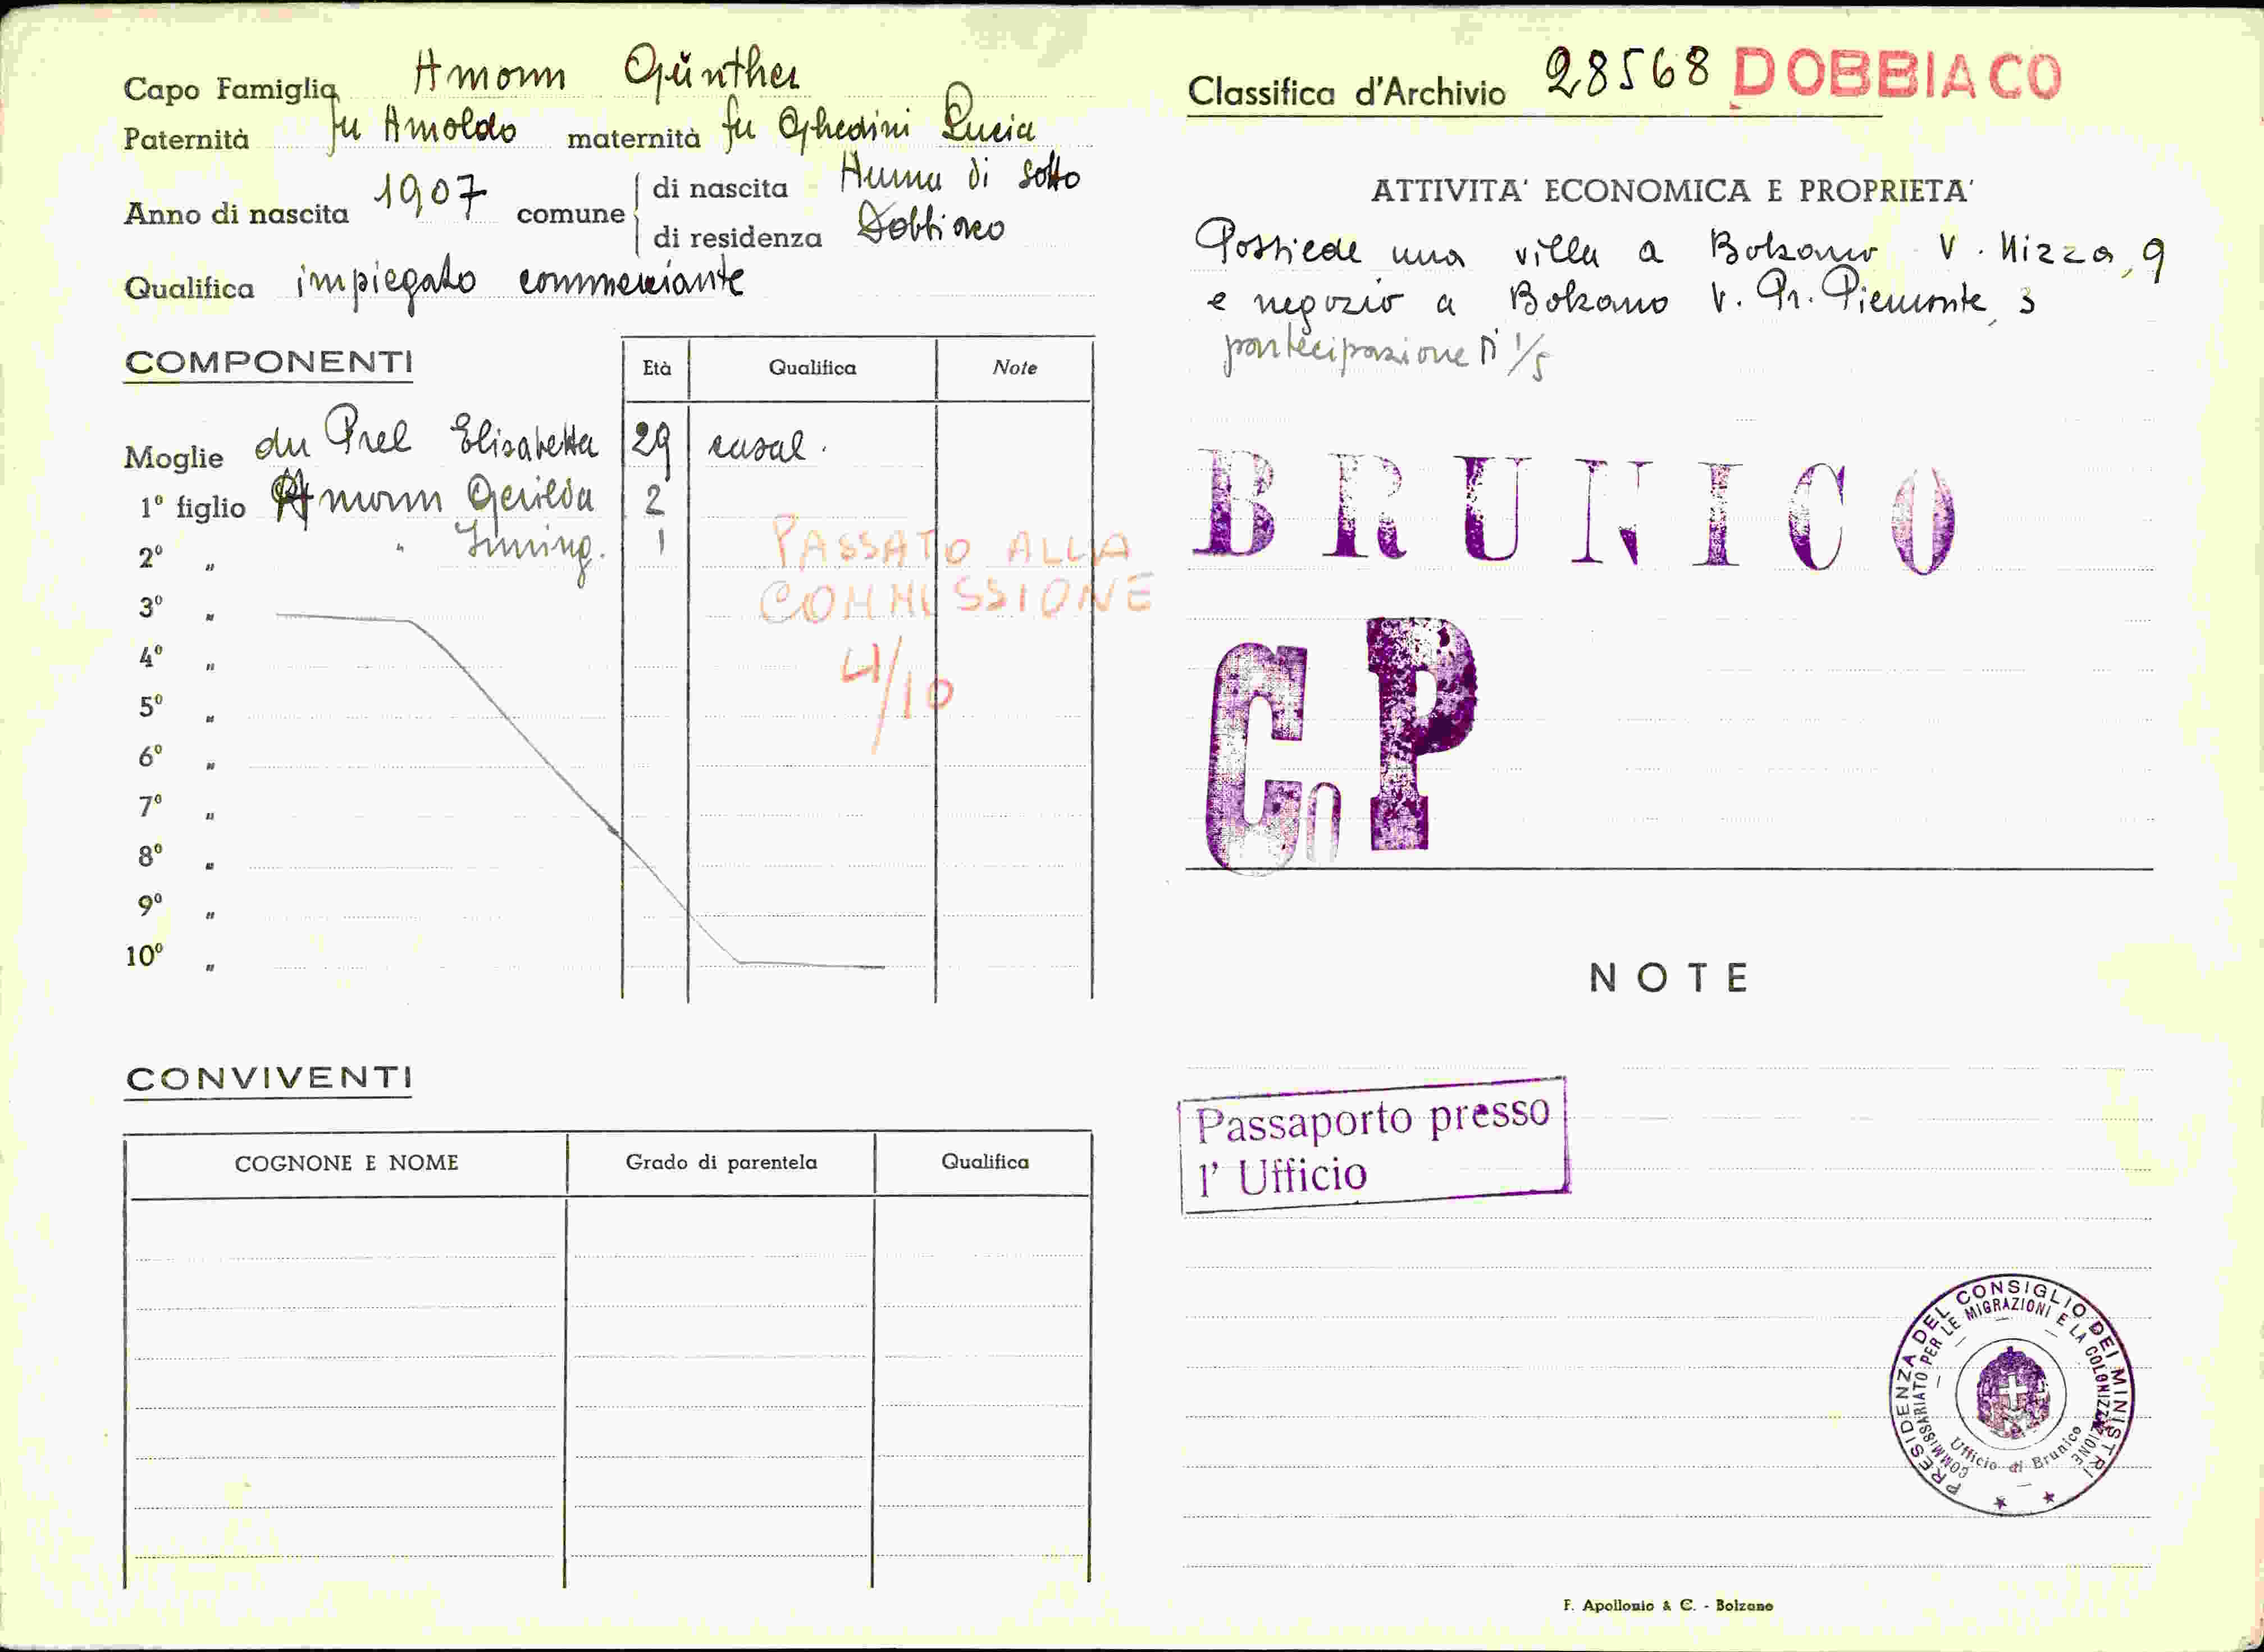 Capo Famiglia Amonn Günther
Paternità fu Arnoldo maternità fu Ghedini Lucia
Anno di nascita 1907 comune di nascita di sotto
di residenza Dobbiaco
Qualifica impiegato commerciante
COMPONENTI
Età Qualifica Note
Moglie du Prel Elisabetta 29 casal.
1º figlio Amonn Gerilda 2
2º „ " 1
3º „
4º „
5º „
6º „
7º „
8º „
9º „
10º „
PASSATO ALLA
COMMISSIONE
4/10
CONVIVENTI
COGNONE E NOME Grado di parentela Qualifica
Classifica d'Archivio 28568 DOBBIACO
ATTIVITA' ECONOMICA E PROPRIETA'
Possiede una villa a Bolzano V. Nizza, 9
e negozio a Bolzano V. Pr. Piemonte, 3
partecipazione di 1/5
BRUNICO
C P
NOTE
Passaporto presso
l' Ufficio
PRESIDENZA DEL CONSIGLIO DEI MINISTRI
COMMISSARIATO PER LE MIGRAZIONI E LA COLONIZZAZIONE
Ufficio di Brunico
F. Apollonio & C. - Bolzano